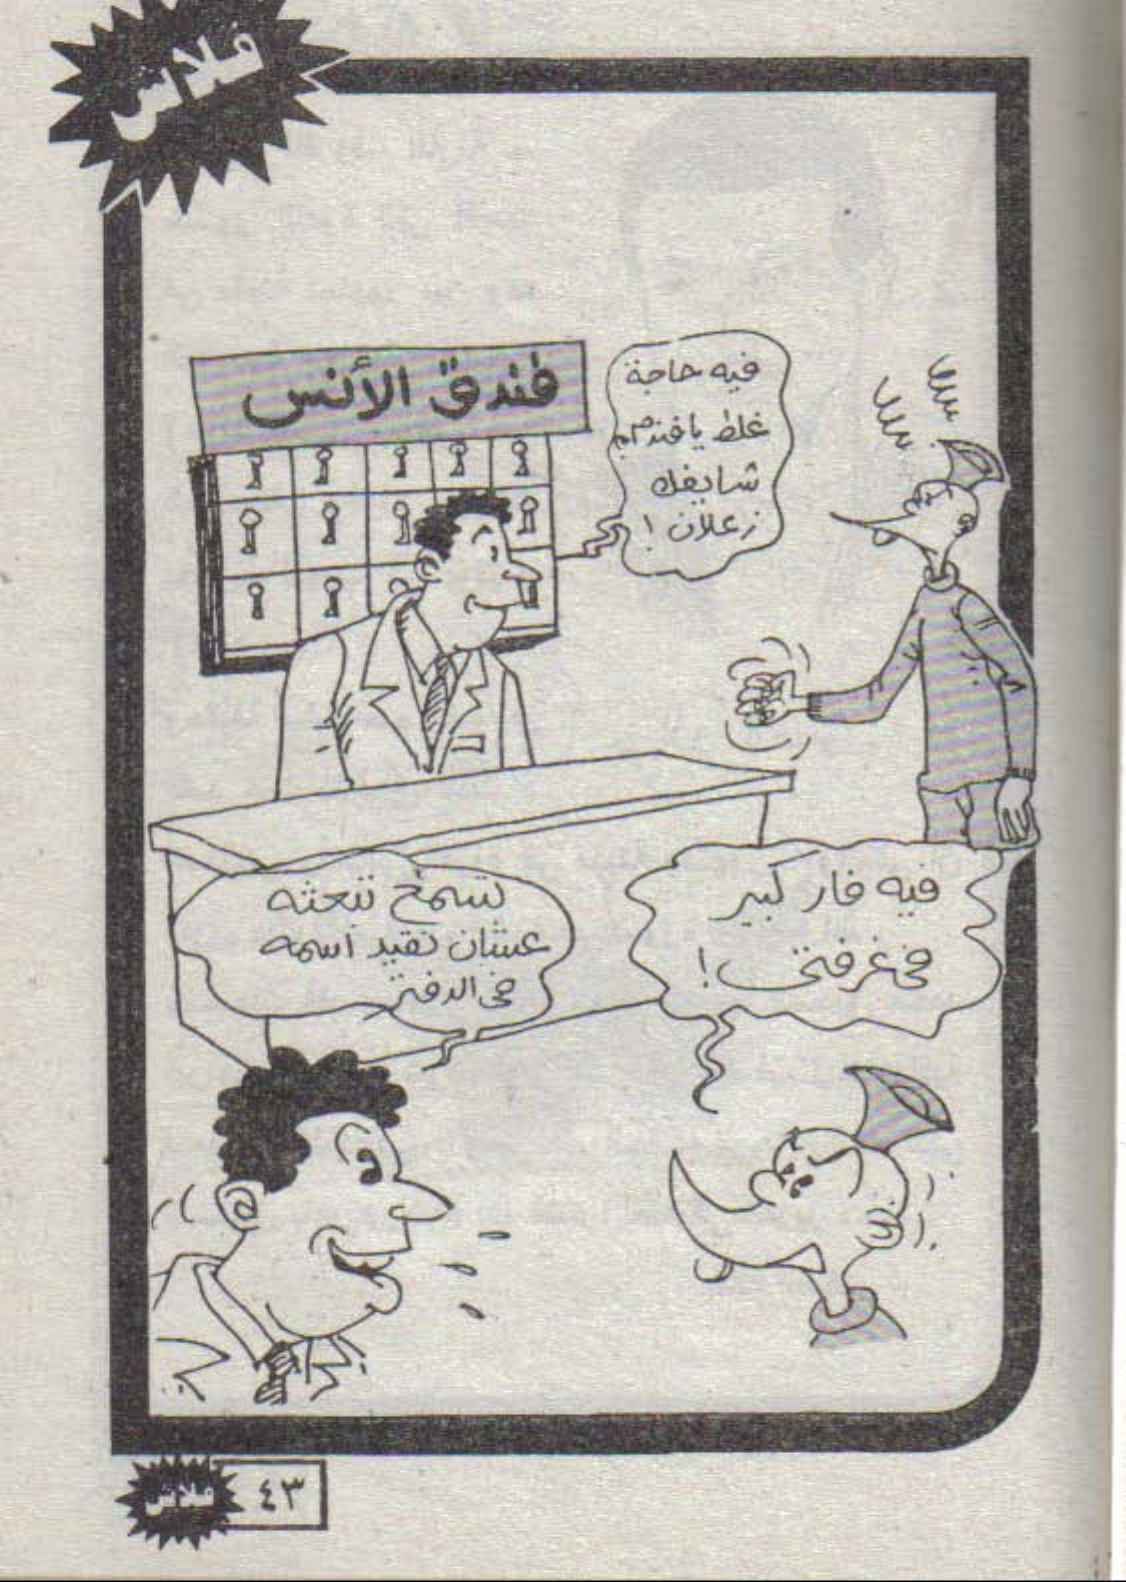 فلاش
فندق الأنس
فيه حاجة
غلط يا فندم
شايفك
زعلان !
فيه فار كبير
في غرفتي !
تسمح تبعته
عشان نقيد اسمه
في الدفتر
فلاش
٤٣